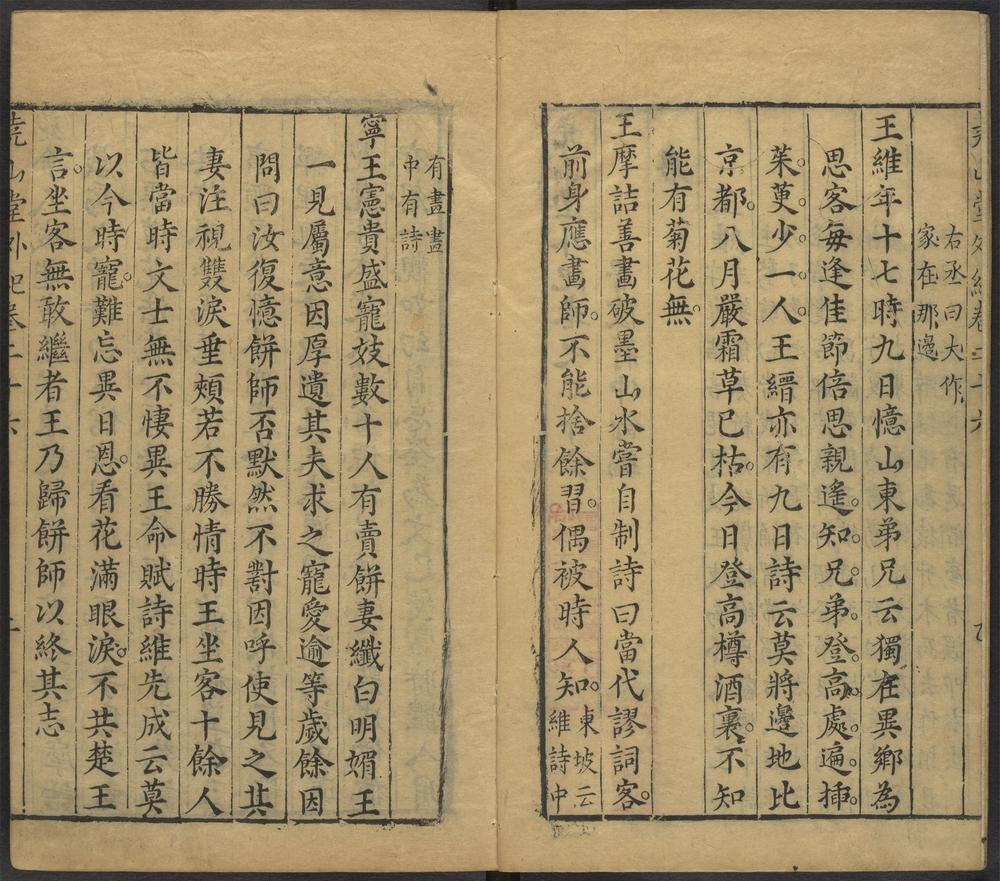 堯山堂外紀卷二十六
右丞曰大作
家在那邊
王維年十七時九日憶山東弟兄云獨在異鄉為
思客每逢佳節倍思親遙知兄弟登高處遍插
茱萸少一人王縉亦有九日詩云莫將邊地比
京都八月嚴霜草已枯今日登高樽酒裏不知
能有菊花無
王摩詰善畫破墨山水嘗自制詩曰當代謬詞客
前身應畫師不能捨餘習偶被時人知東坡云
維詩中
有畫畫
中有詩
寧王憲貴盛寵妓數十人有賣餅妻纖白明媚王
一見屬意因厚遺其夫求之寵愛逾等歲餘因
問曰汝復憶餅師否默然不對因呼使見之其
妻注視雙淚垂頰若不勝情時王坐客十餘人
皆當時文士無不悽異王命賦詩維先成云莫
以今時寵難忘異日恩看花滿眼淚不共楚王
言坐客無敢繼者王乃歸餅師以終其志
堯山堂外紀卷二十六